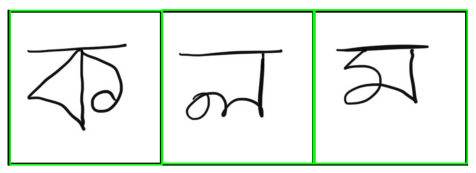 ক ল ম